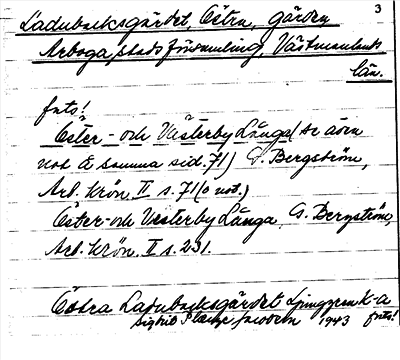 3
Ladubacksgärdet, Östra, gärden
Arboga stadsförsamling, Västmanlands
län.
fnts!
Öster- och Västerby Långa (se även
not å samma sid. 71) G. Bergström,
Arb. krön. II s. 71 (o not.)
Öster- och Vesterby Långa, G. Bergström,
Arb. krön. II s. 231.
Östra Ladubacksgärdet Ljunggren K-a
Sigrid 1943 fnts!